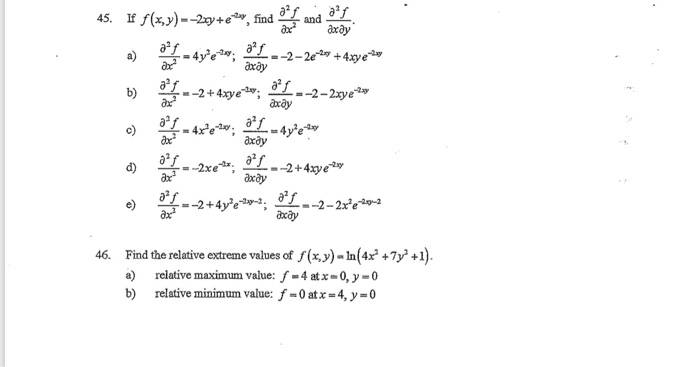 45. If f(x,y) = -2xy + e^{-2xy}, find ∂²f/∂x² and ∂²f/∂x∂y.
a) ∂²f/∂x² = 4y²e^{-2xy}; ∂²f/∂x∂y = -2 - 2e^{-2xy} + 4xye^{-2xy}
b) ∂²f/∂x² = -2 + 4xye^{-2xy}; ∂²f/∂x∂y = -2 - 2xye^{-2xy}
c) ∂²f/∂x² = 4x²e^{-2xy}; ∂²f/∂x∂y = 4y²e^{-2xy}
d) ∂²f/∂x² = -2xe^{-2x}; ∂²f/∂x∂y = -2 + 4xye^{-2xy}
e) ∂²f/∂x² = -2 + 4y²e^{-2xy-2}; ∂²f/∂x∂y = -2 - 2x²e^{-2xy-2}
46. Find the relative extreme values of f(x,y) = ln(4x² + 7y² + 1).
a) relative maximum value: f = 4 at x = 0, y = 0
b) relative minimum value: f = 0 at x = 4, y = 0